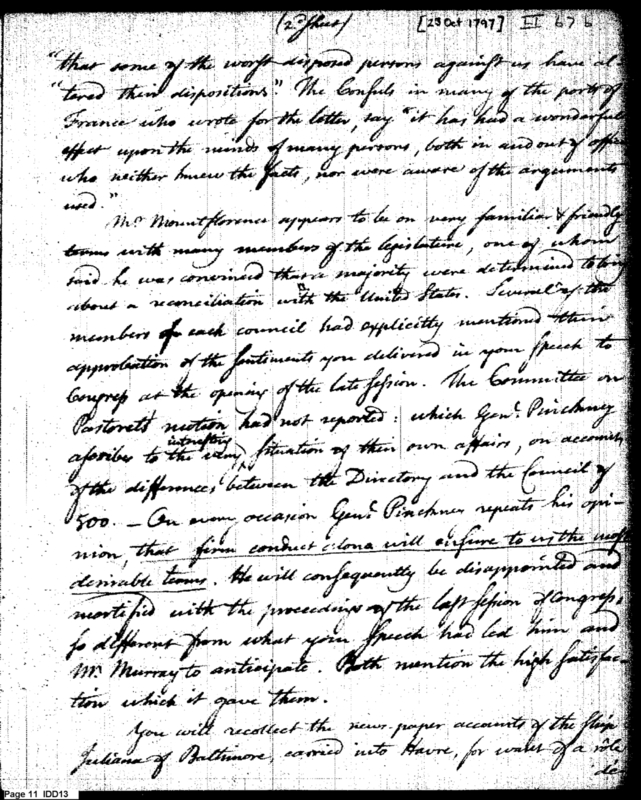 (2d sheet) [23 Oct 1797] II 676
"that some of the worst disposed persons against us have al-
"tered their dispositions." The Consuls in many of the ports of
France who wrote for the letter, say "it has had a wonderful
effect upon the minds of many persons, both in and out of office
who neither knew the facts, nor were aware of the arguments
used."
Mr. Mountflorence appears to be on very familiar & friendly
terms with many members of the legislature, one of whom
said he was convinced that a majority were determined to bring
about a reconciliation with the United States. Several of the
members of each council had explicitly mentioned their
approbation of the sentiments you delivered in your speech to
Congress at the opening of the late session. The Committee on
Pastoret's motion had not reported: which Genl. Pinckney
interesting
ascribes to the very situation of their own affairs, on account
of the differences between the Directory and the Council of
500. — On every occasion Genl. Pinckney repeats his opi-
nion, that firm conduct alone will ensure to us the most
desirable terms. He will consequently be disappointed and
mortified with the proceedings of the last session of Congress
so different from what your speech had led him and
Mr. Murray to anticipate. Both mention the high satisfac-
tion which it gave them.
You will recollect the news-paper accounts of the ship
Juliana of Baltimore, carried into Havre, for want of a rôle
de
Page 11 IDD13